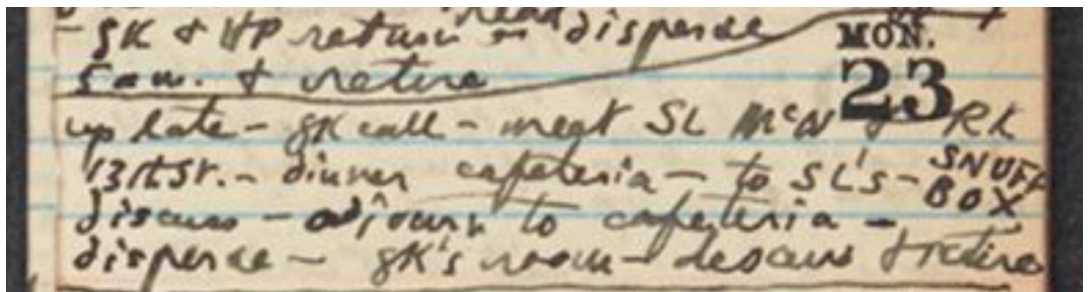 read
- GK & HP return - disperse
5 a.m. & retire
MON.
23
up late - GK call - meet SL McN & RK
13th St. - dinner cafeteria - to SL's - SNUFF BOX
discuss - adjourn to cafeteria -
disperse - GK's room - discuss & retire